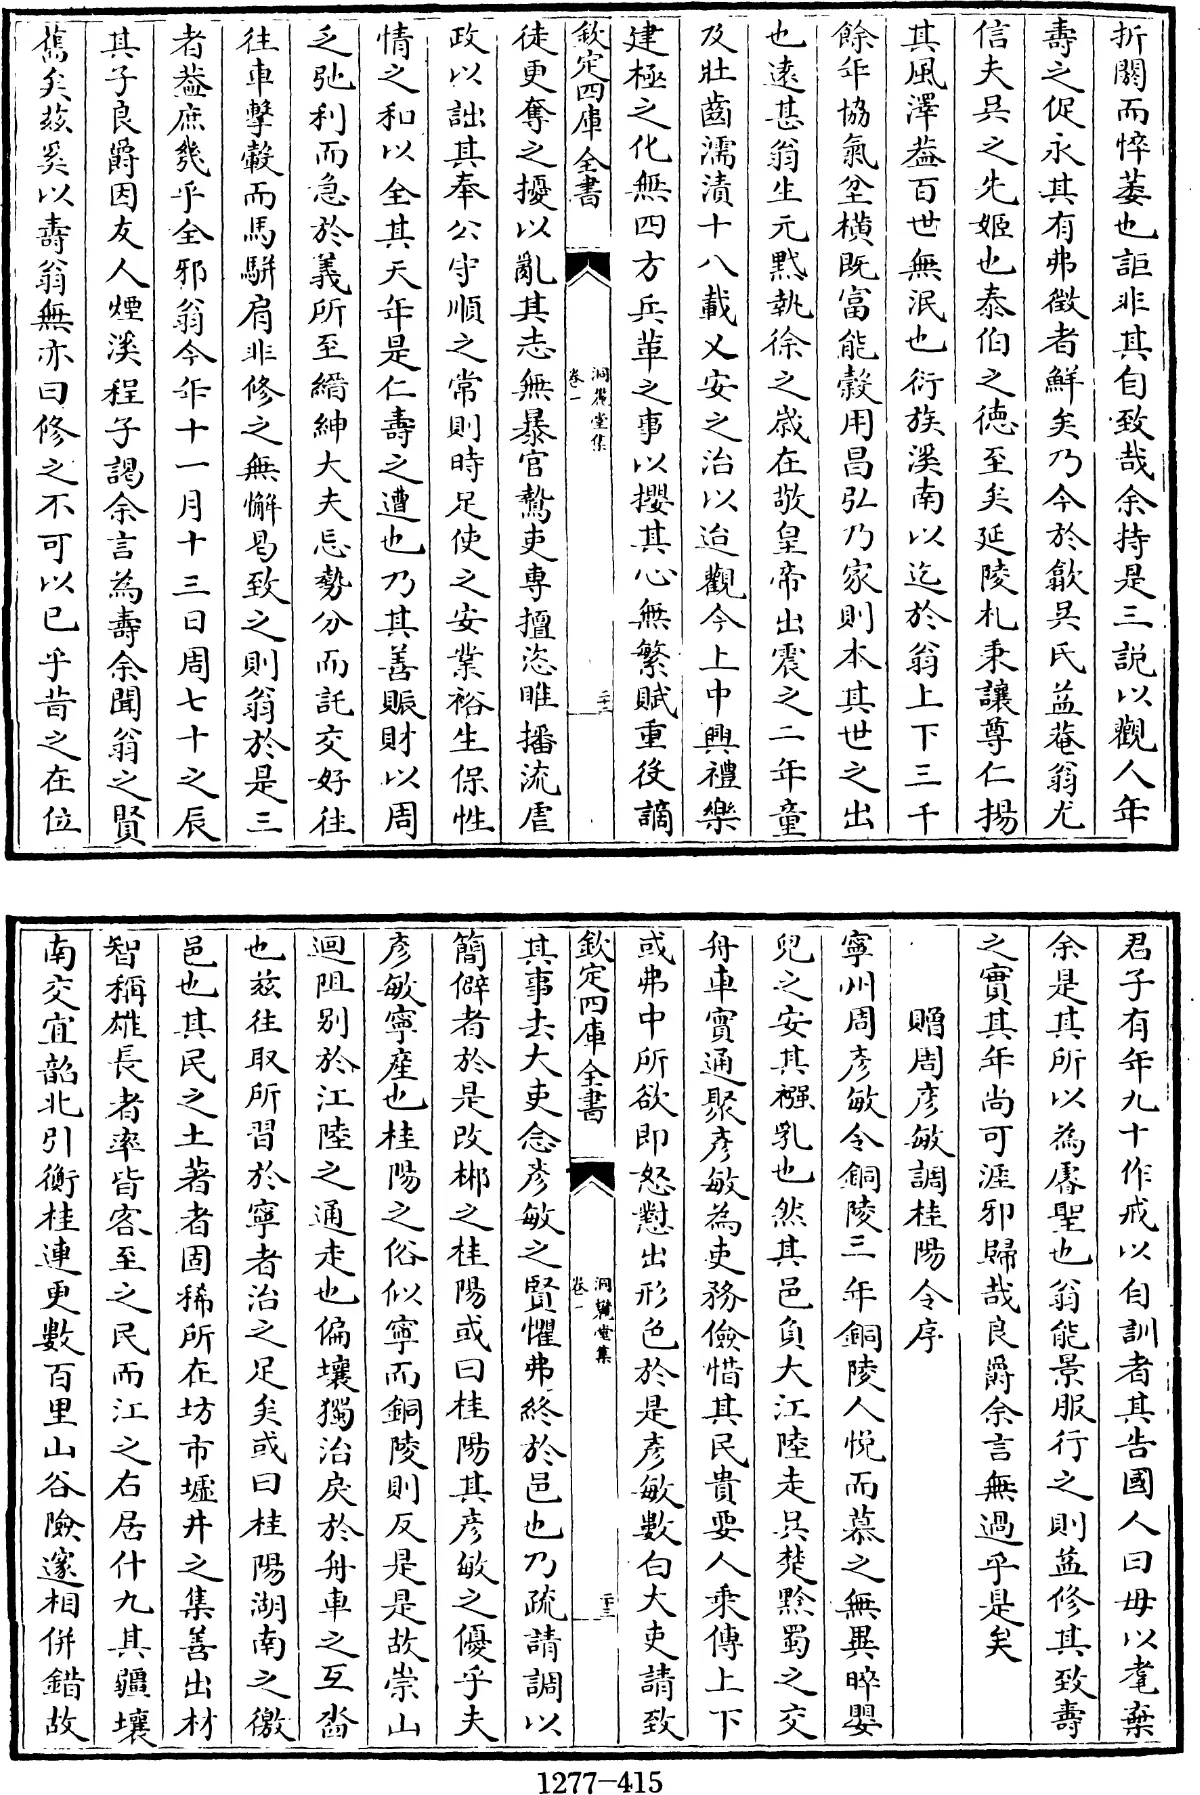 折閼而悴萎也詎非其自致哉余持是三説以觀人年
壽之促永其有弗徴者鮮矣乃今於歙吳氏益菴翁尤
信夫吳之先姬也泰伯之徳至矣延陵札秉讓尊仁揚
其風澤益百世無泯也衍族溪南以迄於翁上下三千
餘年協氣坌横既富能穀用昌弘乃家則本其世之出
也逺甚翁生元黙執徐之嵗在敬皇帝出震之二年童
及壯齒濡漬十八載乂安之治以迨觀今上中興禮樂
建極之化無四方兵革之事以攖其心無繁賦重役謫
欽定四庫全書
洞麓堂集
卷一
二十二
徒更奪之擾以亂其志無暴官鷙吏専擅恣睢播流虐
政以詘其奉公守順之常則時足使之安業裕生保性
情之和以全其天年是仁壽之遭也乃其善賑財以周
乏弛利而急於義所至縉紳大夫忘勢分而託交好往
往車擊轂而馬騈肩非修之無懈曷致之則翁於是三
者葢庶幾乎全邪翁今年十一月十三日周七十之辰
其子良爵因友人煙溪程子謁余言為壽余聞翁之賢
舊矣兹奚以壽翁無亦曰修之不可以已乎昔之在位
君子有年九十作戒以自訓者其告國人曰毋以耄棄
余是其所以為睿聖也翁能景服行之則益修其致壽
之實其年尚可涯邪歸哉良爵余言無過乎是矣
贈周彦敏調桂陽令序
寧州周彦敏令銅陵三年銅陵人悦而慕之無異晬嬰
兒之安其襁乳也然其邑負大江陸走呉楚黔蜀之交
舟車實通聚彦敏為吏務儉惜其民貴要人乘傳上下
或弗中所欲即怒懟出形色於是彦敏數白大吏請致
欽定四庫全書
洞麓堂集
卷一
二十三
其事去大吏念彦敏之賢懼弗終於邑也乃疏請調以
簡僻者於是改郴之桂陽或曰桂陽其彦敏之優乎夫
彦敏寧產也桂陽之俗似寧而銅陵則反是是故崇山
迴阻别於江陸之通走也偏壤獨治戾於舟車之互沓
也兹往取所習於寧者治之足矣或曰桂陽湖南之徼
邑也其民之土著者固稀所在坊市墟井之集善出材
智稱雄長者率皆客至之民而江之右居什九其疆壤
南交宜韶北引衡桂連更數百里山谷險邃相併錯故
1277-415